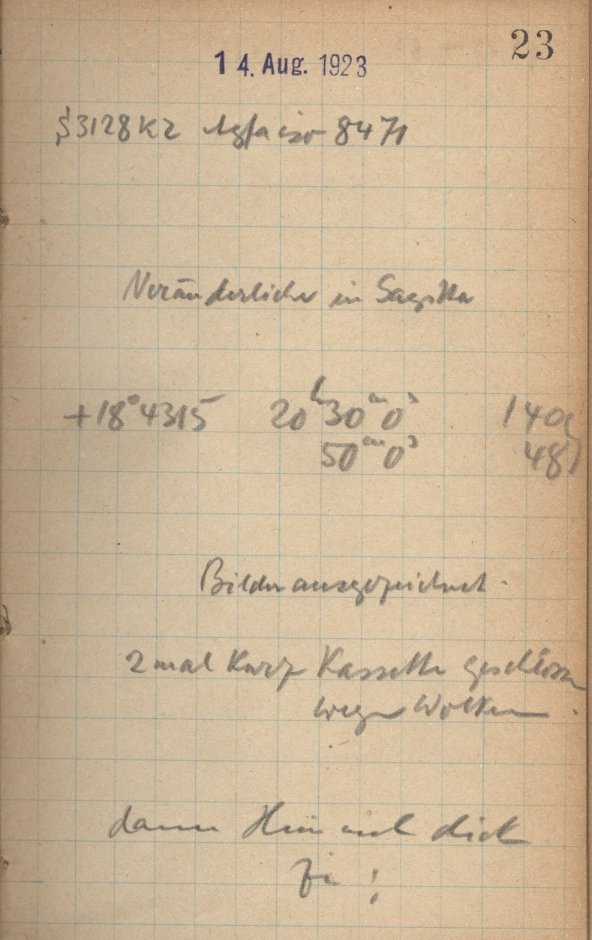 23
14. Aug. 1923
S 3128 K2 Agfa iso 8471
Veränderliche in Sagitta
+18° 4315 20h 30m 0s 140
50m 0s 48
Bilder ausgezeichnet.
2 mal kurz Kassette geschlossen
wegen Wolken.
dann Himmel dick
zu!